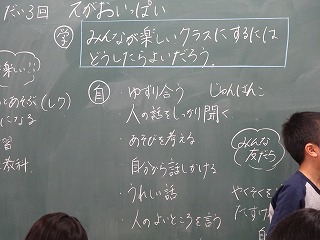 だい3回 えがおいっぱい
学 みんなが楽しいクラスにするには
どうしたらよいだろう。
楽しい!!
あそぶ(レク)
になる
習
教科
自 ・ゆずり合う じゅんばんこ
・人の話をしっかり聞く
・あそびを考える
・自分から話しかける
・うれしい話
・人のよいところを言う
みんな
友だち
やくそくを
たすけ
自